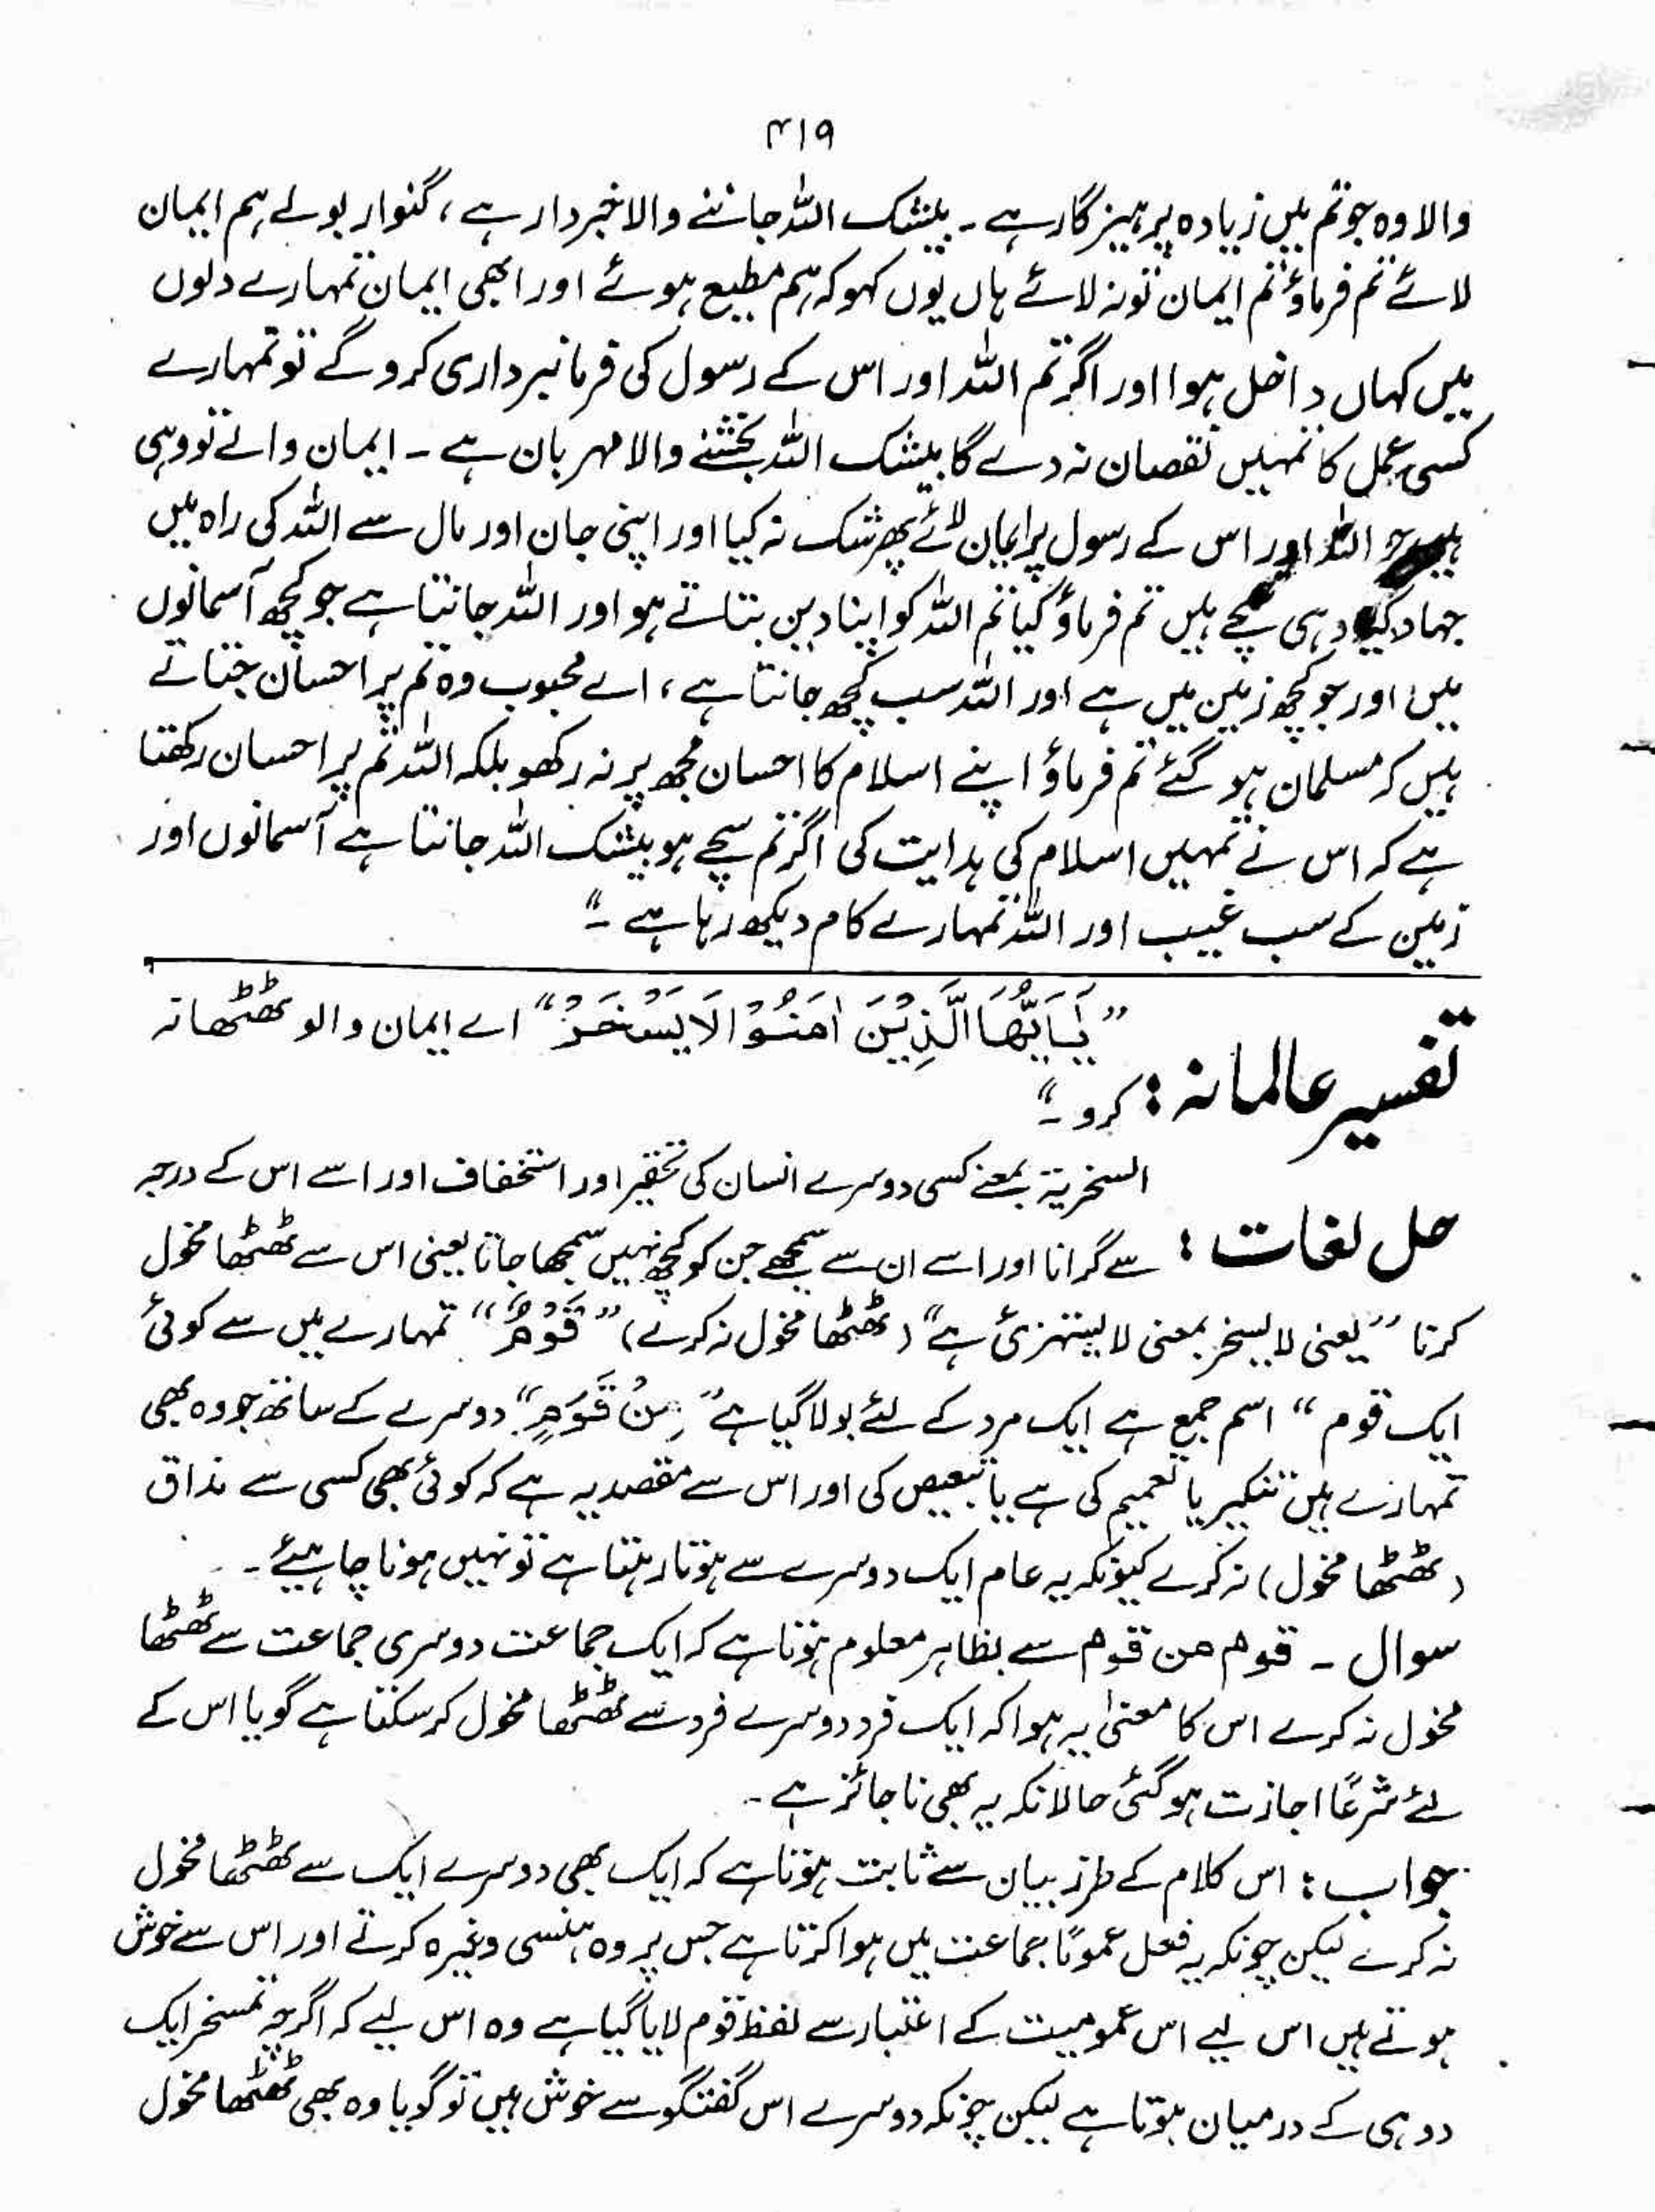 ۴۱۹
والا وہ جو تم میں زیادہ پرہیزگار ہے ۔ بیشک اللہ جاننے والا خبردار ہے ، گنوار بولے ہم ایمان
لائے تم فرماؤ تم ایمان تو نہ لائے ہاں یوں کہو کہ ہم مطیع ہوئے اور ابھی ایمان تمہارے دلوں
میں کہاں داخل ہوا اور اگر تم اللہ اور اس کے رسول کی فرمانبرداری کرو گے تو تمہارے
کسی عمل کا تمہیں نقصان نہ دے گا بیشک اللہ بخشنے والا مہربان ہے ۔ ایمان والے تو وہی
ہیں جو اللہ اور اس کے رسول پر ایمان لائے پھر شک نہ کیا اور اپنی جان اور مال سے اللہ کی راہ میں
جہاد کیا وہی سچے ہیں تم فرماؤ کیا تم اللہ کو اپنا دین بتاتے ہو اور اللہ جانتا ہے جو کچھ آسمانوں
میں اور جو کچھ زمین میں ہے اور اللہ سب کچھ جانتا ہے ، اے محبوب وہ تم پر احسان جتاتے
ہیں کہ مسلمان ہو گئے تم فرماؤ اپنے اسلام کا احسان مجھ پر نہ رکھو بلکہ اللہ تم پر احسان رکھتا
ہے کہ اس نے تمہیں اسلام کی ہدایت کی اگر تم سچے ہو بیشک اللہ جانتا ہے آسمانوں اور
زمین کے سب غیب اور اللہ تمہارے کام دیکھ رہا ہے ۔“
تفسیر عالمانہ : ”یٰۤاَیُّهَا الَّذِیْنَ اٰمَنُوْا لَا یَسْخَرْ“ اے ایمان والو ٹھٹھا نہ
کرو ۔“
حل لغات : السخریۃ بمعنے کسی دوسرے انسان کی تحقیر اور استخفاف اور اسے اس کے درجہ
سے گرانا اور اسے ان سے سمجھے جن کو کچھ نہیں سمجھا جاتا یعنی اس سے ٹھٹھا مخول
کرنا ”یعنی لا یسخر بمعنی لا یستہزئ ہے“ (ٹھٹھا مخول نہ کرے) ”قَوْمٌ“ تمہارے میں سے کوئی
ایک قوم “ اسم جمع ہے ایک مرد کے لئے بولا گیا ہے ”مِنْ قَوْمٍ“ دوسرے کے ساتھ جو وہ بھی
تمہارے ہیں تنکیر یا تعمیم کی ہے یا تبعیض کی اور اس سے مقصد یہ ہے کہ کوئی بھی کسی سے مذاق
(ٹھٹھا مخول) نہ کرے کیونکہ یہ عام ایک دوسرے سے ہوتا رہتا ہے تو نہیں ہونا چاہیئے ۔
سوال ۔ قوم من قوم سے بظاہر معلوم ہوتا ہے کہ ایک جماعت دوسری جماعت سے ٹھٹھا
مخول نہ کرے اس کا معنیٰ یہ ہوا کہ ایک فرد دوسرے فرد سے ٹھٹھا مخول کر سکتا ہے گویا اس کے
لئے شرعًا اجازت ہو گئی حالانکہ یہ بھی ناجائز ہے ۔
جواب : اس کلام کے طرز بیان سے ثابت ہوتا ہے کہ ایک بھی دوسرے ایک سے ٹھٹھا مخول
نہ کرے لیکن چونکہ یہ فعل عمومًا جماعت میں ہوا کرتا ہے جس پر وہ ہنسی وغیرہ کرتے اور اس سے خوش
ہوتے ہیں اس لیے اس عمومیت کے اعتبار سے لفظ قوم لایا گیا ہے وہ اس لیے کہ اگرچہ تمسخر ایک
دو ہی کے درمیان ہوتا ہے لیکن چونکہ دوسرے اس گفتگو سے خوش ہیں تو گویا وہ بھی ٹھٹھا مخول